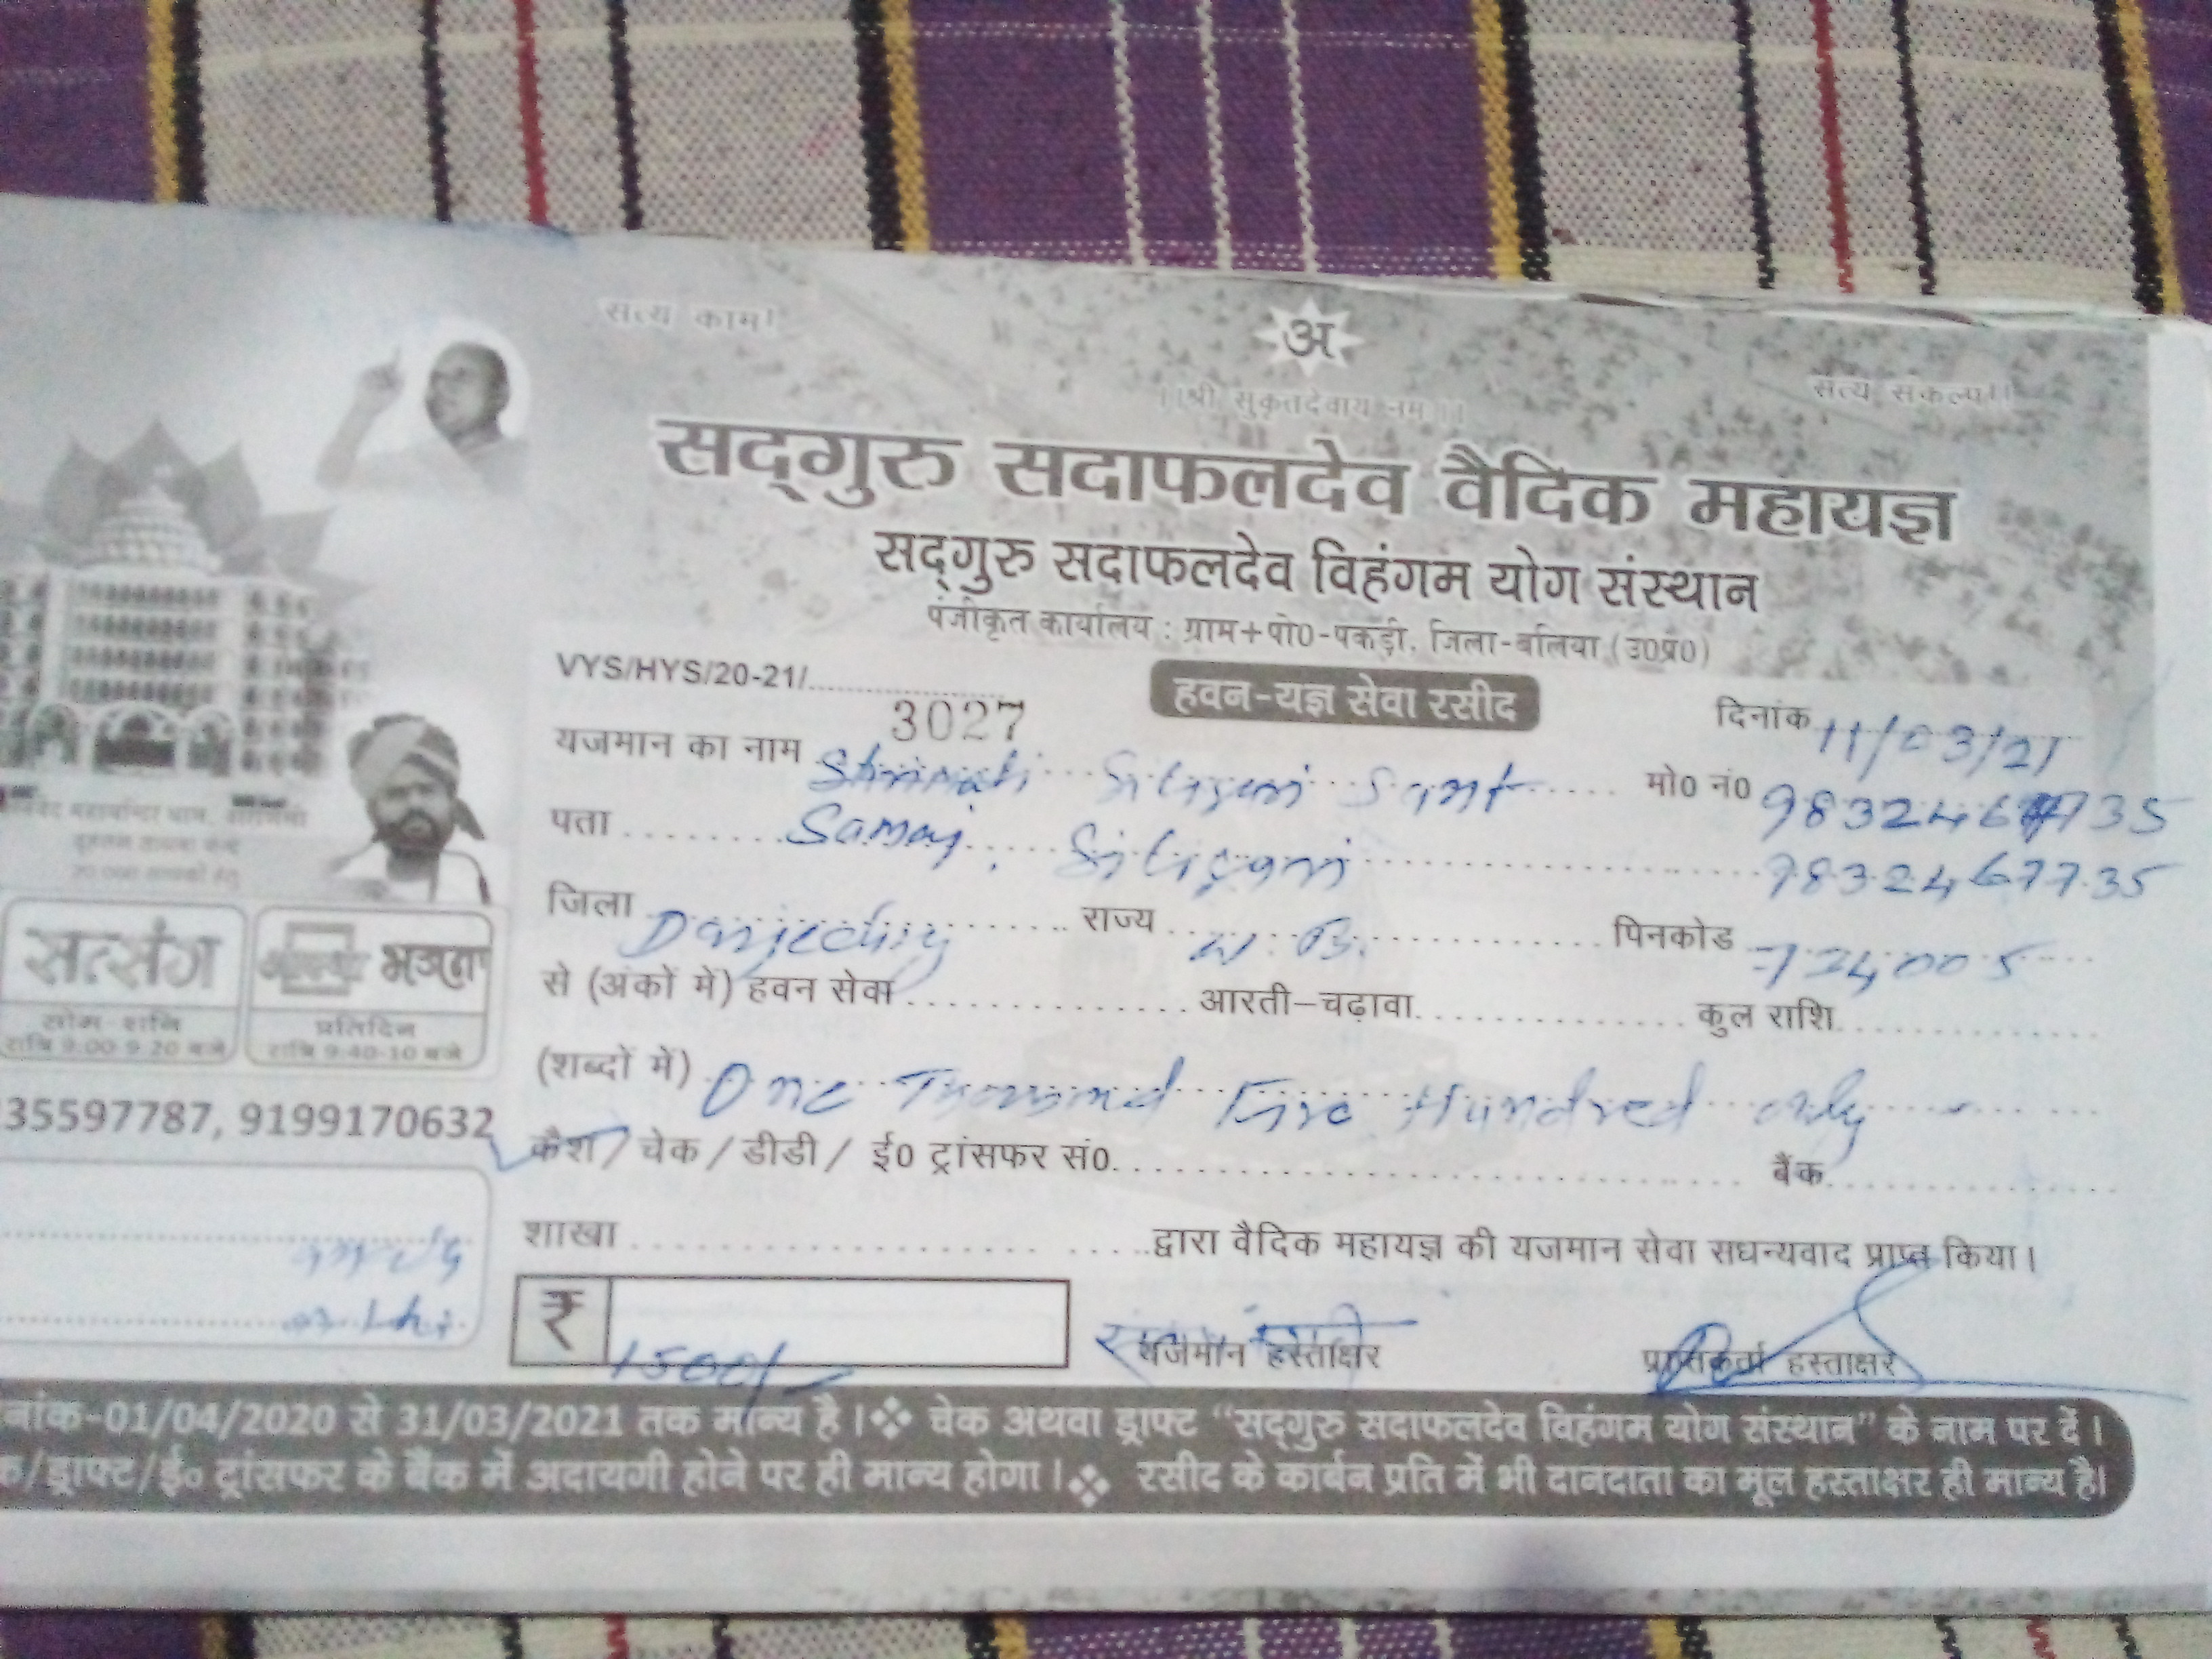 सत्य काम।
अ
सत्य संकल्प।।
।।श्री सुकृतदेवाय नमः।।
सद्गुरु सदाफलदेव वैदिक महायज्ञ
सद्गुरु सदाफलदेव विहंगम योग संस्थान
पंजीकृत कार्यालय : ग्राम+पो0-पकड़ी, जिला-बलिया (उ0प्र0)
VYS/HYS/20-21/ 3027
हवन-यज्ञ सेवा रसीद
दिनांक 11/03/21
यजमान का नाम
मो0 नं0 9832467735
पता Samaj, Siliguri
9832467735
जिला Darjeeling राज्य W.B. पिनकोड 734005
से (अंकों में) हवन सेवा आरती–चढ़ावा कुल राशि
(शब्दों में) One Thousand Five Hundred only
कैश / चेक / डीडी / ई0 ट्रांसफर सं0 बैंक
शाखा द्वारा वैदिक महायज्ञ की यजमान सेवा सधन्यवाद प्राप्त किया।
₹ 1500/-
यजमान हस्ताक्षर
प्राप्तिकर्ता हस्ताक्षर
सत्संग
सोम-शनि
रात्रि 9:00-9:20 बजे
प्रतिदिन
रात्रि 9:40-10 बजे
35597787, 9199170632
नांक-01/04/2020 से 31/03/2021 तक मान्य है। ❖ चेक अथवा ड्राफ्ट “सद्गुरु सदाफलदेव विहंगम योग संस्थान” के नाम पर दें।
/ड्राफ्ट/ई० ट्रांसफर के बैंक में अदायगी होने पर ही मान्य होगा। ❖ रसीद के कार्बन प्रति में भी दानदाता का मूल हस्ताक्षर ही मान्य है।